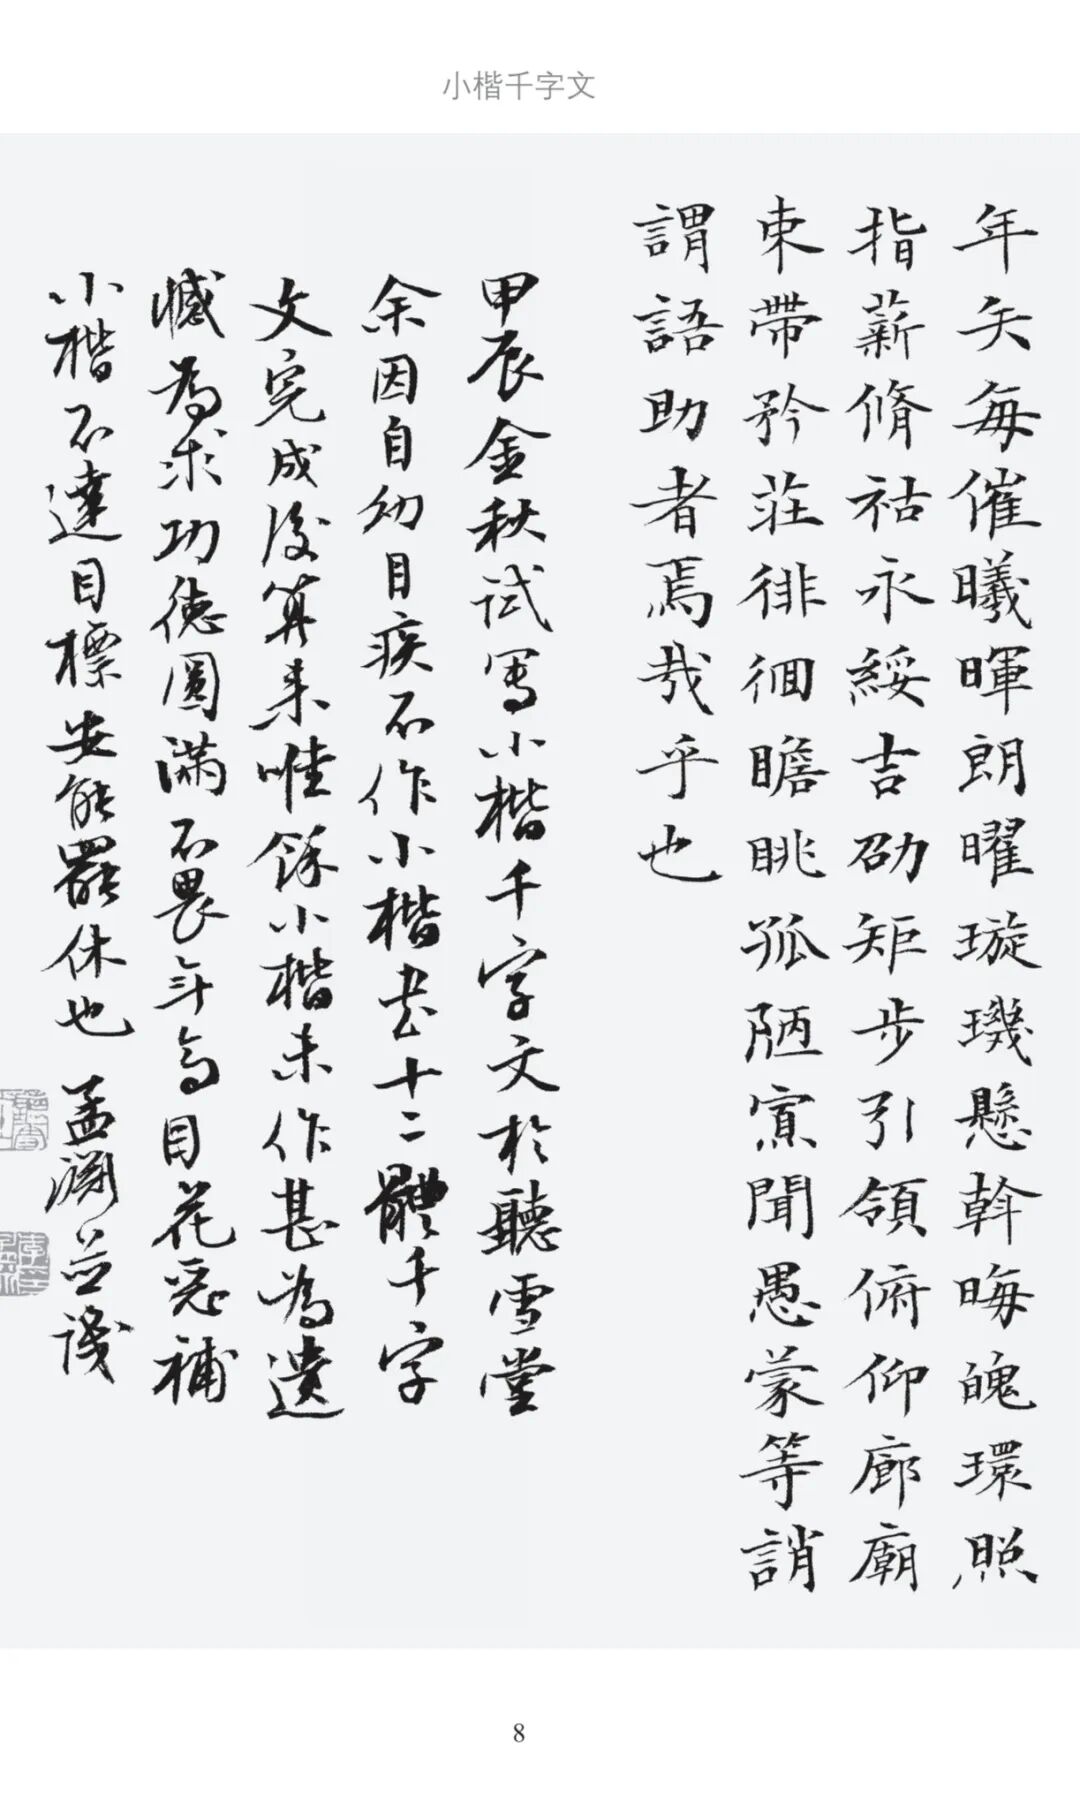 小楷千字文
年矢每催曦暉朗曜璇璣懸斡晦魄環照
指薪脩祜永綏吉劭矩步引領俯仰廊廟
束帶矜莊徘徊瞻眺孤陋寡聞愚蒙等誚
謂語助者焉哉乎也
甲辰金秋試寫小楷千字文於聽雪堂
余因自幼目疾不作小楷書十二體千字
文完成後算來唯餘小楷未作甚為遺
憾為求功德圓滿不畏年高目花惡補
小楷不達目標安能罷休也孟淵并識
8